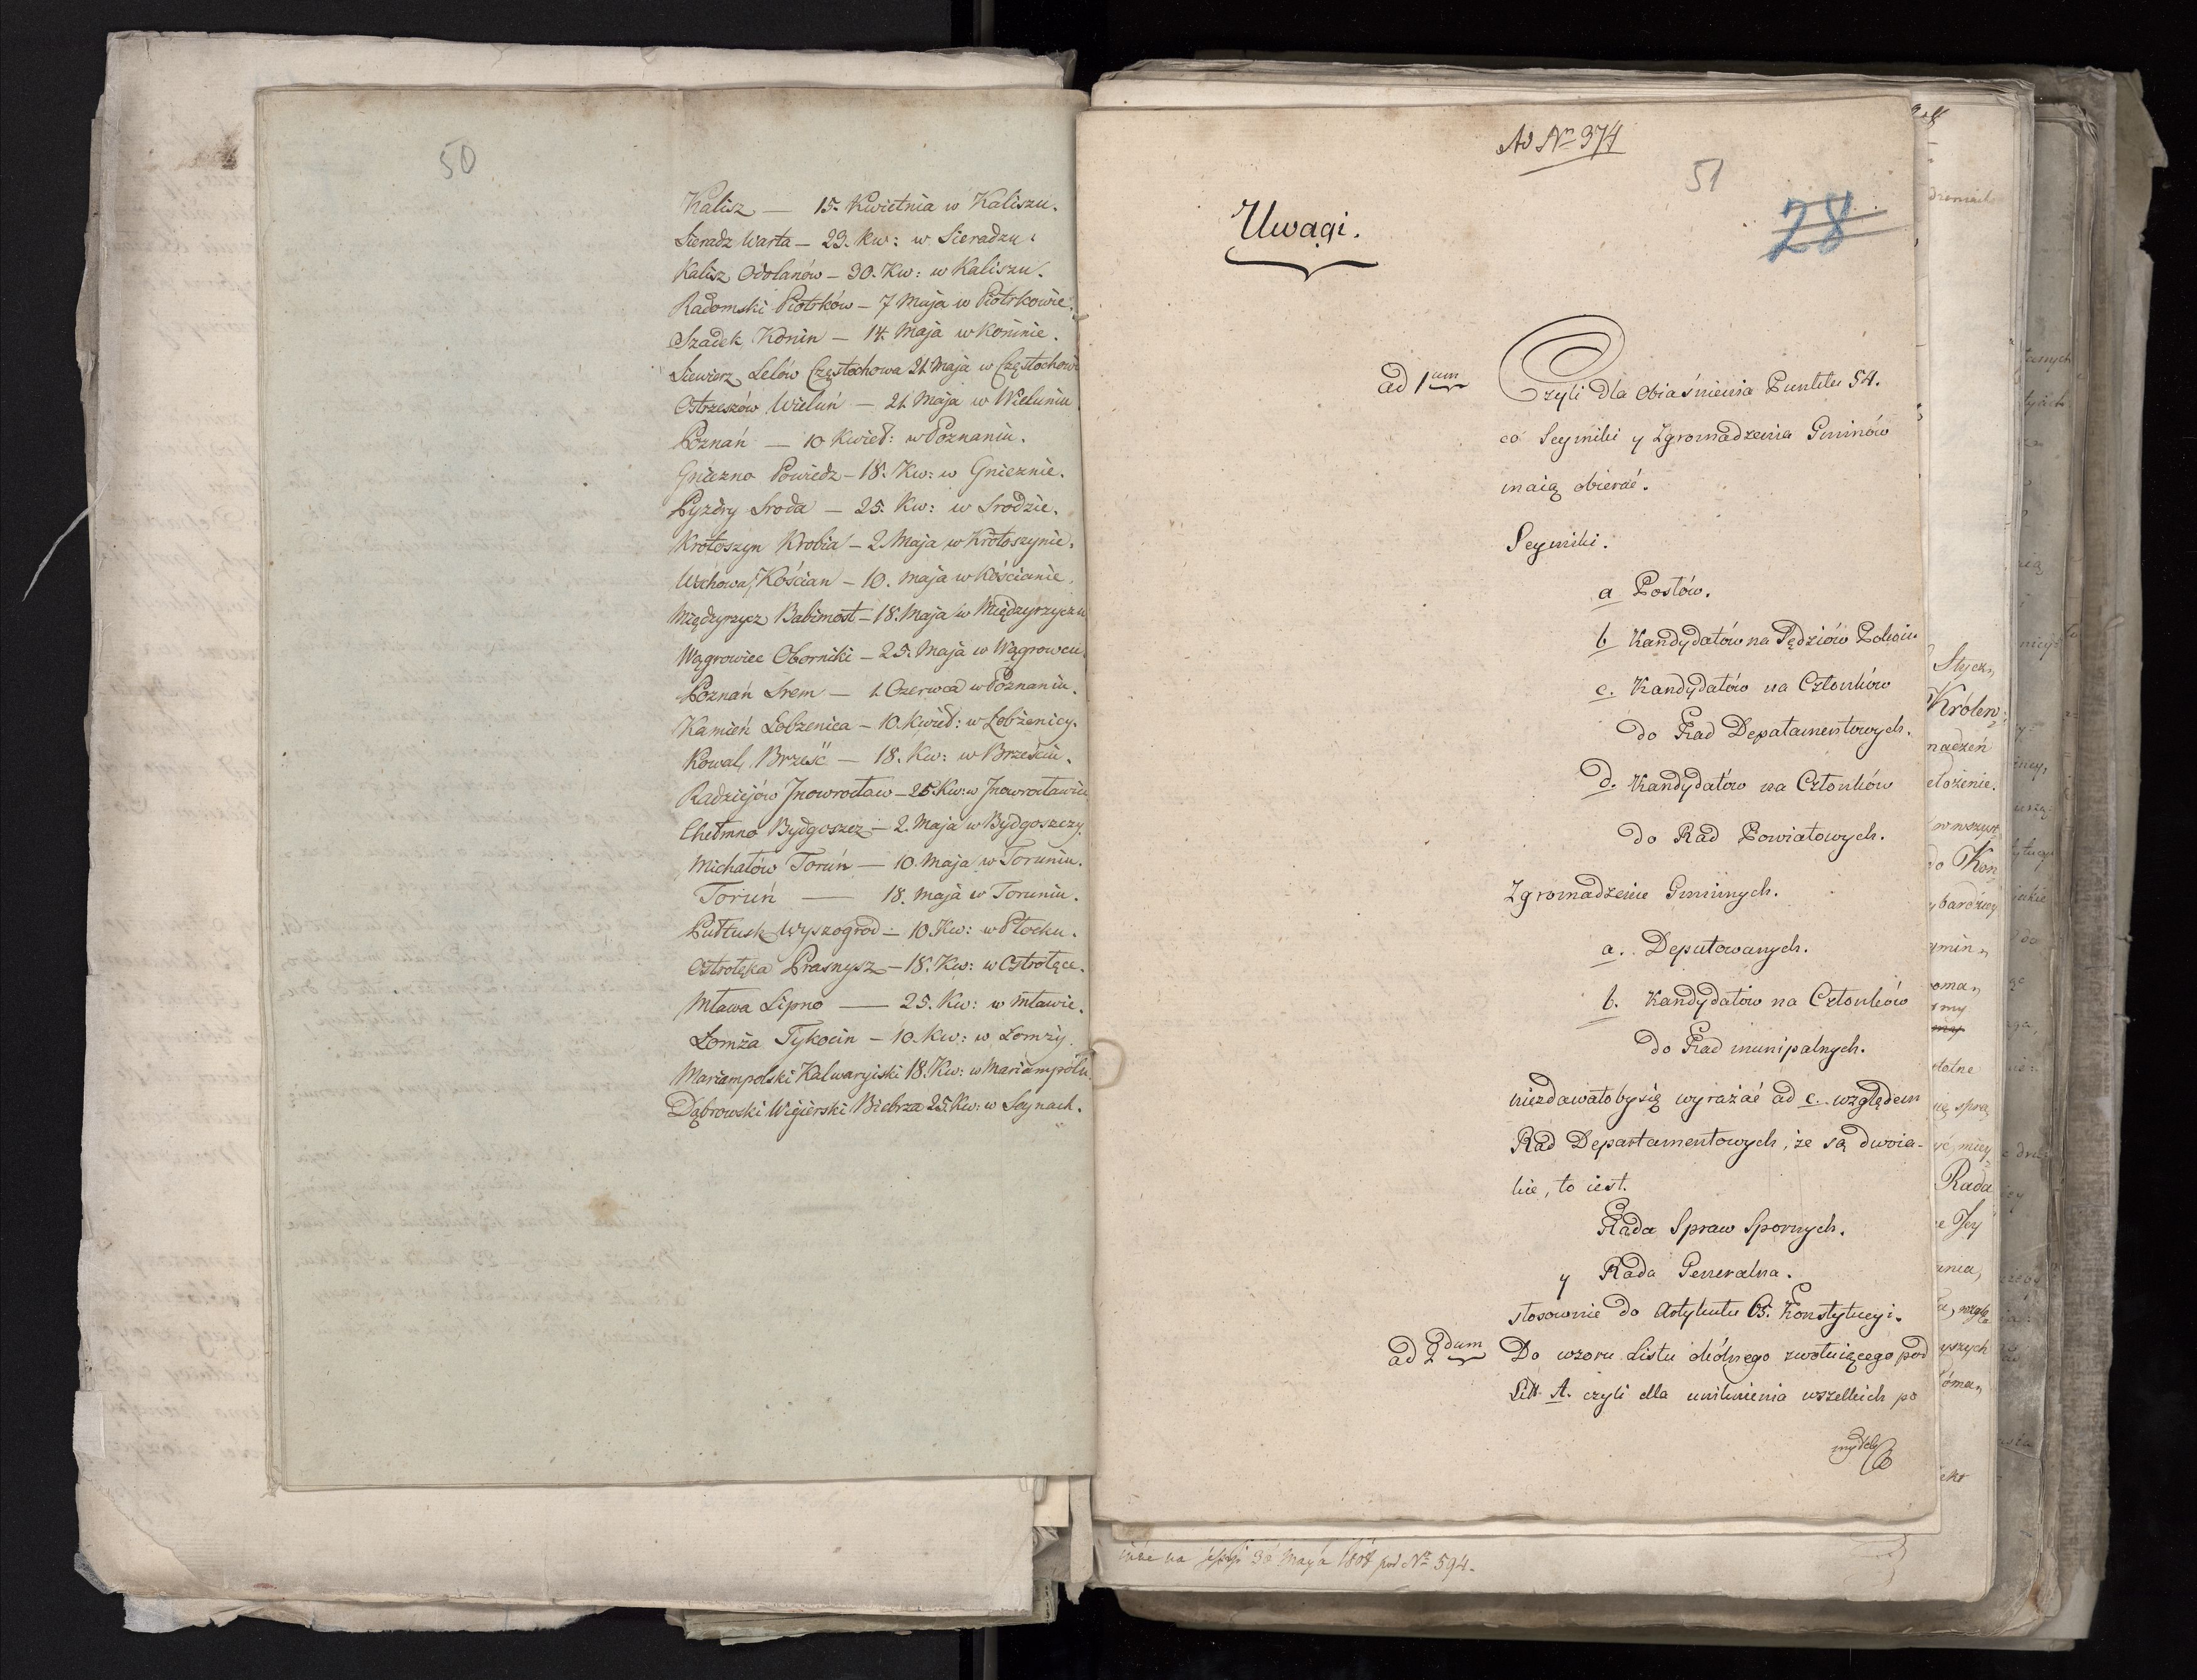 50
Kalisz — 15. Kwietnia w Kaliszu.
Sieradz Warta — 29. Kw: w Sieradzu.
Kalisz Odolanów — 30. Kw: w Kaliszu.
Radomski Piotrków — 7 Maja w Piotrkowie.
Szadek Konin — 14. Maja w Koninie.
Siewierz Lelów Częstochowa 21. Maja w Częstochowi
Ostrzeszów Wieluń — 21 Maja w Wieluniu
Poznań — 10 Kwiet: w Poznaniu.
Gniezno Powiedz — 18. Kw: w Gnieznie.
Pyzdry Sroda — 25. Kw: w Srodzie.
Krotoszyn Krobia — 2. Maja w Krotoszynie.
Wschowa, Kościan — 10. maja w Kościanie.
Międzyrzycz Babimost — 18. Maja w Międzyrzyczu
Wągrowiec Oborniki — 25. Maja w Wągrowcu.
Poznań Srem — 1. Czerwca w Poznaniu.
Kamień Łobzenica — 10. Kwiet: w Łobżenicy.
Kowal, Brześć — 18. Kw: w Brześciu.
Radziejów Jnowrocław — 25. Kw: w Jnowrocławiu
Chełmno Bydgoszcz — 2. Maja w Bydgoszczy.
Michałów Toruń — 10. Maja w Toruniu.
Toruń — 18. maja w Toruniu.
Pułtusk Wyszogrod — 10 Kw: w Płocku.
Ostrołęka Prasnysz — 18. Kw: w Ostrołęce.
Mława Lipno — 25. Kw: w Mławie.
Łomża Tykocin — 10. Kw: w Łomży.
Mariampolski Kalwaryiski 18. Kw: w Mariampolu.
Dąbrowski Wigierski Biebrza 25. Kw: w Seynach.
Ad Nro 374
51
28
Uwagi.
ad 1um Czyli dla obiaśnienia Punktu 54.
co Seymiki y Zgromadzenia Gminów
maią obierać.
Seymiki.
a Posłów.
b Kandydatów na Sędziów Pokoiu
c. Kandydatów na Członków
do Rad Depatamentowych.
d. Kandydatów na Członków
do Rad Powiatowych.
Zgromadzenie Gminnych.
a. Deputowanych.
b. Kandydatów na Członków
do Rad munipalnych.
niezdawałoby się wyrażać ad c. względem
Rad Departamentowych, że są dwoia-
kie, to iest.
Rada Spraw Spornych.
y Rada Generalna.
stosownie do Artykułu 65. Konstytucyi.
ad 2dum Do wzoru Listu okólnego zwołuiącego pod
Litt. A. czyli dla uniknienia wszelkich po
myłek
na sessyi 30 Maya 1808 pod No 594.